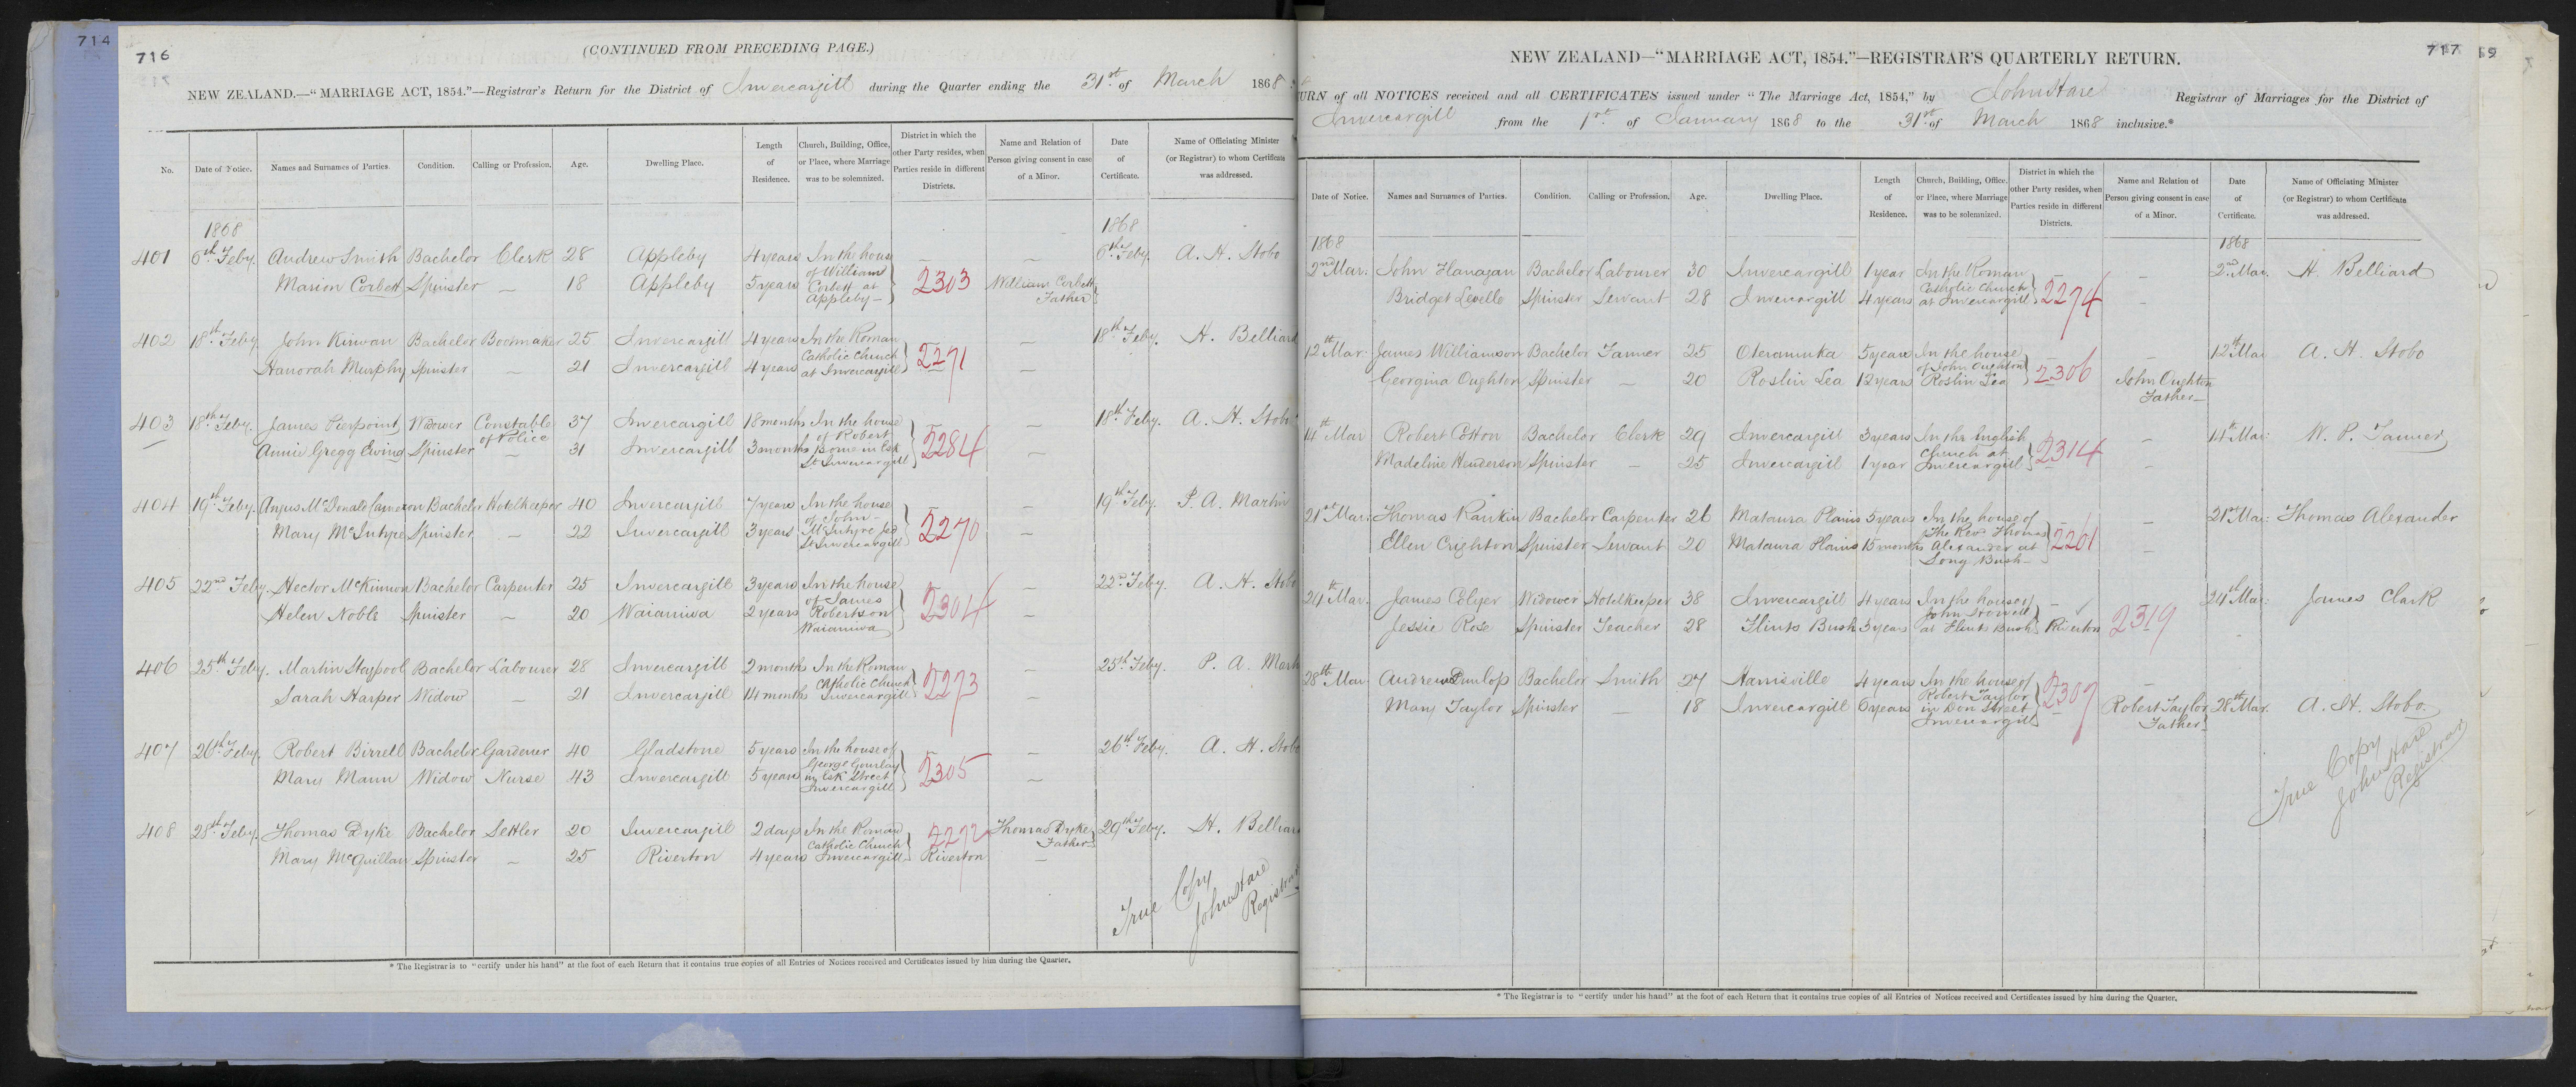 714
716
(CONTINUED FROM PRECEDING PAGE.)
NEW ZEALAND.—"MARRIAGE ACT, 1854."—Registrar's Return for the District of Invercargill during the Quarter ending the 31st of March 1868
No. Date of Notice. Names and Surnames of Parties. Condition. Calling or Profession. Age. Dwelling Place. Length of Residence. Church, Building, Office, or Place, where Marriage was to be solemnized. District in which the other Party resides, when Parties reside in different Districts. Name and Relation of Person giving consent in case of a Minor. Date of Certificate. Name of Officiating Minister (or Registrar) to whom Certificate was addressed.
1868 1868
401 6th Feby. Andrew Smith Bachelor Clerk 28 Appleby 4 years In the house — — 6th Feby. A. H. Stobo
Marion Corbett Spinster — 18 Appleby 5 years of William Corbett at Appleby — 2303 William Corbett Father
402 18th Feby. John Kirwan Bachelor Bootmaker 25 Invercargill 4 years In the Roman — — 18th Feby. H. Belliard
Hanorah Murphy Spinster — 21 Invercargill 4 years Catholic Church at Invercargill 2271 —
403 18th Feby. James Pierpoint Widower Constable of Police 37 Invercargill 18 months In the house — — 18th Feby. A. H. Stobo
Annie Gregg Ewing Spinster — 31 Invercargill 3 months of Robert in Esk St Invercargill 2284 —
404 19th Feby. Angus McDonald Cameron Bachelor Hotelkeeper 40 Invercargill 7 years In the house — — 19th Feby. P. A. Martin
Mary McIntyre Spinster — 22 Invercargill 3 years of John McIntyre Jed St Invercargill 2270 —
405 22nd Feby. Hector McKinnon Bachelor Carpenter 25 Invercargill 3 years In the house — — 22nd Feby. A. H. Stobo
Helen Noble Spinster — 20 Waianiwa 2 years of James Robertson Waianiwa 2304 —
406 25th Feby. Martin Staypool Bachelor Labourer 28 Invercargill 2 months In the Roman — — 25th Feby. P. A. Mart
Sarah Harper Widow — 21 Invercargill 14 months Catholic Church Invercargill 2273 —
407 26th Feby. Robert Birrell Bachelor Gardener 40 Gladstone 5 years In the house of — — 26th Feby. A. H. Stobo
Mary Mann Widow Nurse 43 Invercargill 5 years George Gourlay in Esk Street Invercargill 2305 —
408 28th Feby. Thomas Dyke Bachelor Settler 20 Invercargill 2 days In the Roman 2272 Thomas Dyke Father 29th Feby. H. Belliard
Mary McQuillan Spinster — 25 Riverton 4 years Catholic Church Invercargill Riverton —
True Copy
John Hare
Registrar
* The Registrar is to "certify under his hand" at the foot of each Return that it contains true copies of all Entries of Notices received and Certificates issued by him during the Quarter.
717
NEW ZEALAND—"MARRIAGE ACT, 1854."—REGISTRAR'S QUARTERLY RETURN.
URN of all NOTICES received and all CERTIFICATES issued under "The Marriage Act, 1854," by John Hare Registrar of Marriages for the District of
Invercargill from the 1st of January 1868 to the 31st of March 1868 inclusive.*
Date of Notice. Names and Surnames of Parties. Condition. Calling or Profession. Age. Dwelling Place. Length of Residence. Church, Building, Office, or Place, where Marriage was to be solemnized. District in which the other Party resides, when Parties reside in different Districts. Name and Relation of Person giving consent in case of a Minor. Date of Certificate. Name of Officiating Minister (or Registrar) to whom Certificate was addressed.
1868 1868
2nd Mar. John Flanagan Bachelor Labourer 30 Invercargill 1 year In the Roman — — 2nd Mar. H. Belliard
Bridget Leville Spinster Servant 28 Invercargill 4 years Catholic Church at Invercargill 2274 —
12th Mar. James Williamson Bachelor Farmer 25 Oteramika 5 years In the house — — 12th Mar A. H. Stobo
Georgina Oughton Spinster — 20 Roslin Lea 12 years of John Oughton Roslin Lea 2306 John Oughton Father —
14th Mar Robert Cotton Bachelor Clerk 29 Invercargill 3 years In the English — — 14th Mar. W. P. Tanner
Madeline Henderson Spinster — 25 Invercargill 1 year Church at Invercargill 2314 —
21st Mar. Thomas Rankin Bachelor Carpenter 26 Mataura Plains 5 years In the house of — — 21st Mar. Thomas Alexander
Ellen Crighton Spinster Servant 20 Mataura Plains 15 months The Revd Thomas Alexander at Long Bush — 2261 —
24th Mar. James Colyer Widower Hotelkeeper 38 Invercargill 4 years In the house of — 24th Mar. James Clark
Jessie Rose Spinster Teacher 28 Flints Bush 3 years John Stowell at Flints Bush Riverton 2319
28th Mar Andrew Dunlop Bachelor Smith 27 Harrisville 4 years In the house of —
Mary Taylor Spinster — 18 Invercargill 6 years Robert Taylor in Don Street Invercargill 2307 Robert Taylor Father 28th Mar. A. H. Stobo.
True Copy
John Hare
Registrar
* The Registrar is to "certify under his hand" at the foot of each Return that it contains true copies of all Entries of Notices received and Certificates issued by him during the Quarter.